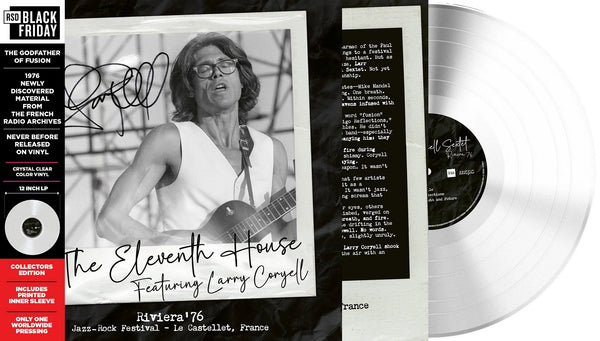 RSD BLACK
FRIDAY
THE GODFATHER
OF FUSION
1976
NEWLY
DISCOVERED
MATERIAL
FROM
THE FRENCH
RADIO ARCHIVES
NEVER BEFORE
RELEASED
ON VINYL
CRYSTAL CLEAR
COLOR VINYL
12 INCH LP
COLLECTORS
EDITION
INCLUDES
PRINTED
INNER SLEEVE
ONLY ONE
WORLDWIDE
PRESSING
The Eleventh House
Featuring Larry Coryell
Riviera'76
Jazz-Rock Festival - Le Castellet, France
of the Paul
to a festival
hesitant. But as
Larry
Sextet. Not yet
—Mike Mandel
One breath.
Within seconds,
infused with
word "fusion"
Reflections,"
He didn't
band—especially
they
fire during
shimmy. Coryell
It wasn't
that few artists
it as a
It wasn't jazz,
scream that
eyes, others
verged on
and fire.
drifting in the
No words.
slightly unruly.
Larry Coryell shook
the air with an
France
Sextet
Riviera '76
and Future